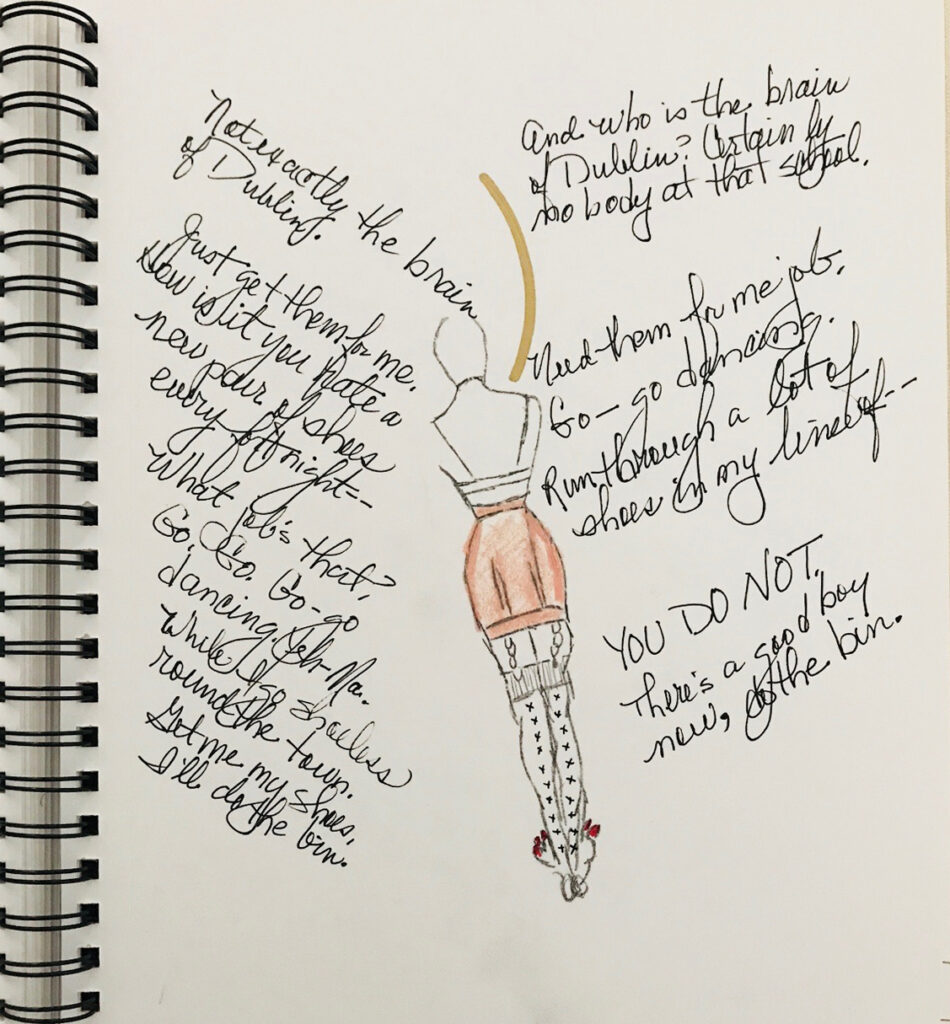 Not exactly the brain
of Dublin.
And who is the brain
of Dublin? Certainly
nobody at that school.
Just get them for me.
How is it you hate a
new pair of shoes
every fortnight--
What job's that?
Go. Go. Go-go
dancing. Ma.
While I go shoeless
round the town.
Get me my shoes,
I'll do the bin.
Need them for me job.
Go-go dancing.
Run through a lot of
shoes in my line of--
YOU DO NOT.
There's a good boy
now, do the bin.